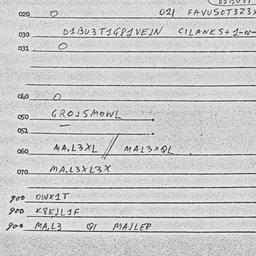 020 O 021 FAVUSOT3Z3
030 D1BU3T1G81VEJN CILANKS+1-N-
031 O
040 O
050 GROJSMOWL
051
060 MA,L3XL // MAL3XQL
070 MA,L3XL3X
900 OWX1T
900 K8EJL1F
900 MA,L3 Q1 MAJLEP